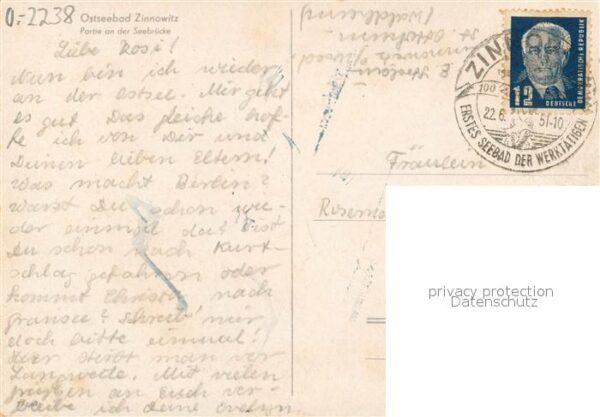 0.-2238
Ostseebad Zinnowitz
Partie an der Seebrücke
Liebe Rosi!
Nun bin ich wieder
an der Ostsee. Mir geht
es gut. Das gleiche hof-
fe ich von Dir und
Deinen lieben Eltern!
Was macht Berlin?
Warst Du schon wie-
der einmal da? Bist
Du schon nach Kurt-
schlag gefahren oder
kommt Christa nach
Gransee? Schreib' mir
doch bitte einmal!
Hier stirbt man vor
Langweile. Mit vielen
Grüßen an Euch ver-
bleibe ich deine Evelyn
Zinnowitz
DEUTSCHE DEMOKRATISCHE REPUBLIK
12
ZINNO
22.6. 51-10
ERSTES SEEBAD DER WERKTÄTIGEN
Fräulein
privacy protection
Datenschutz